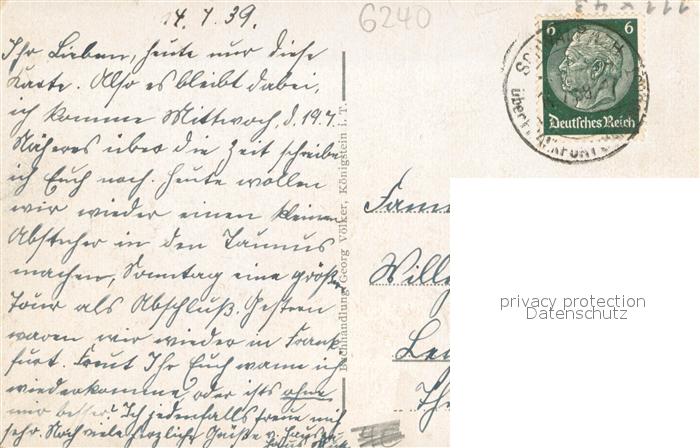 14.7.39.
6240
Ihr Lieben, heute nur diese
Karte. Also es bleibt dabei,
ich komme Mittwoch, d. 19.7.
Näheres über die Zeit schreibe
ich Euch noch. Heute wollen
wir wieder einen kleinen
Abstecher in den Taunus
machen, Sonntag eine größere
Tour als Abschluß. Gestern
waren wir wieder in Frank-
furt. Freut Ihr Euch wann ich
wiederkomme, oder ists ohne
mir besser? Ich jedenfalls freue mich
sehr. Noch viele herzliche Grüße v.
Buchhandlung Georg Völker, Königstein i. T.
6 6
Deutsches Reich
über FRANKFURT
Fam
Willy
privacy protection
Datenschutz